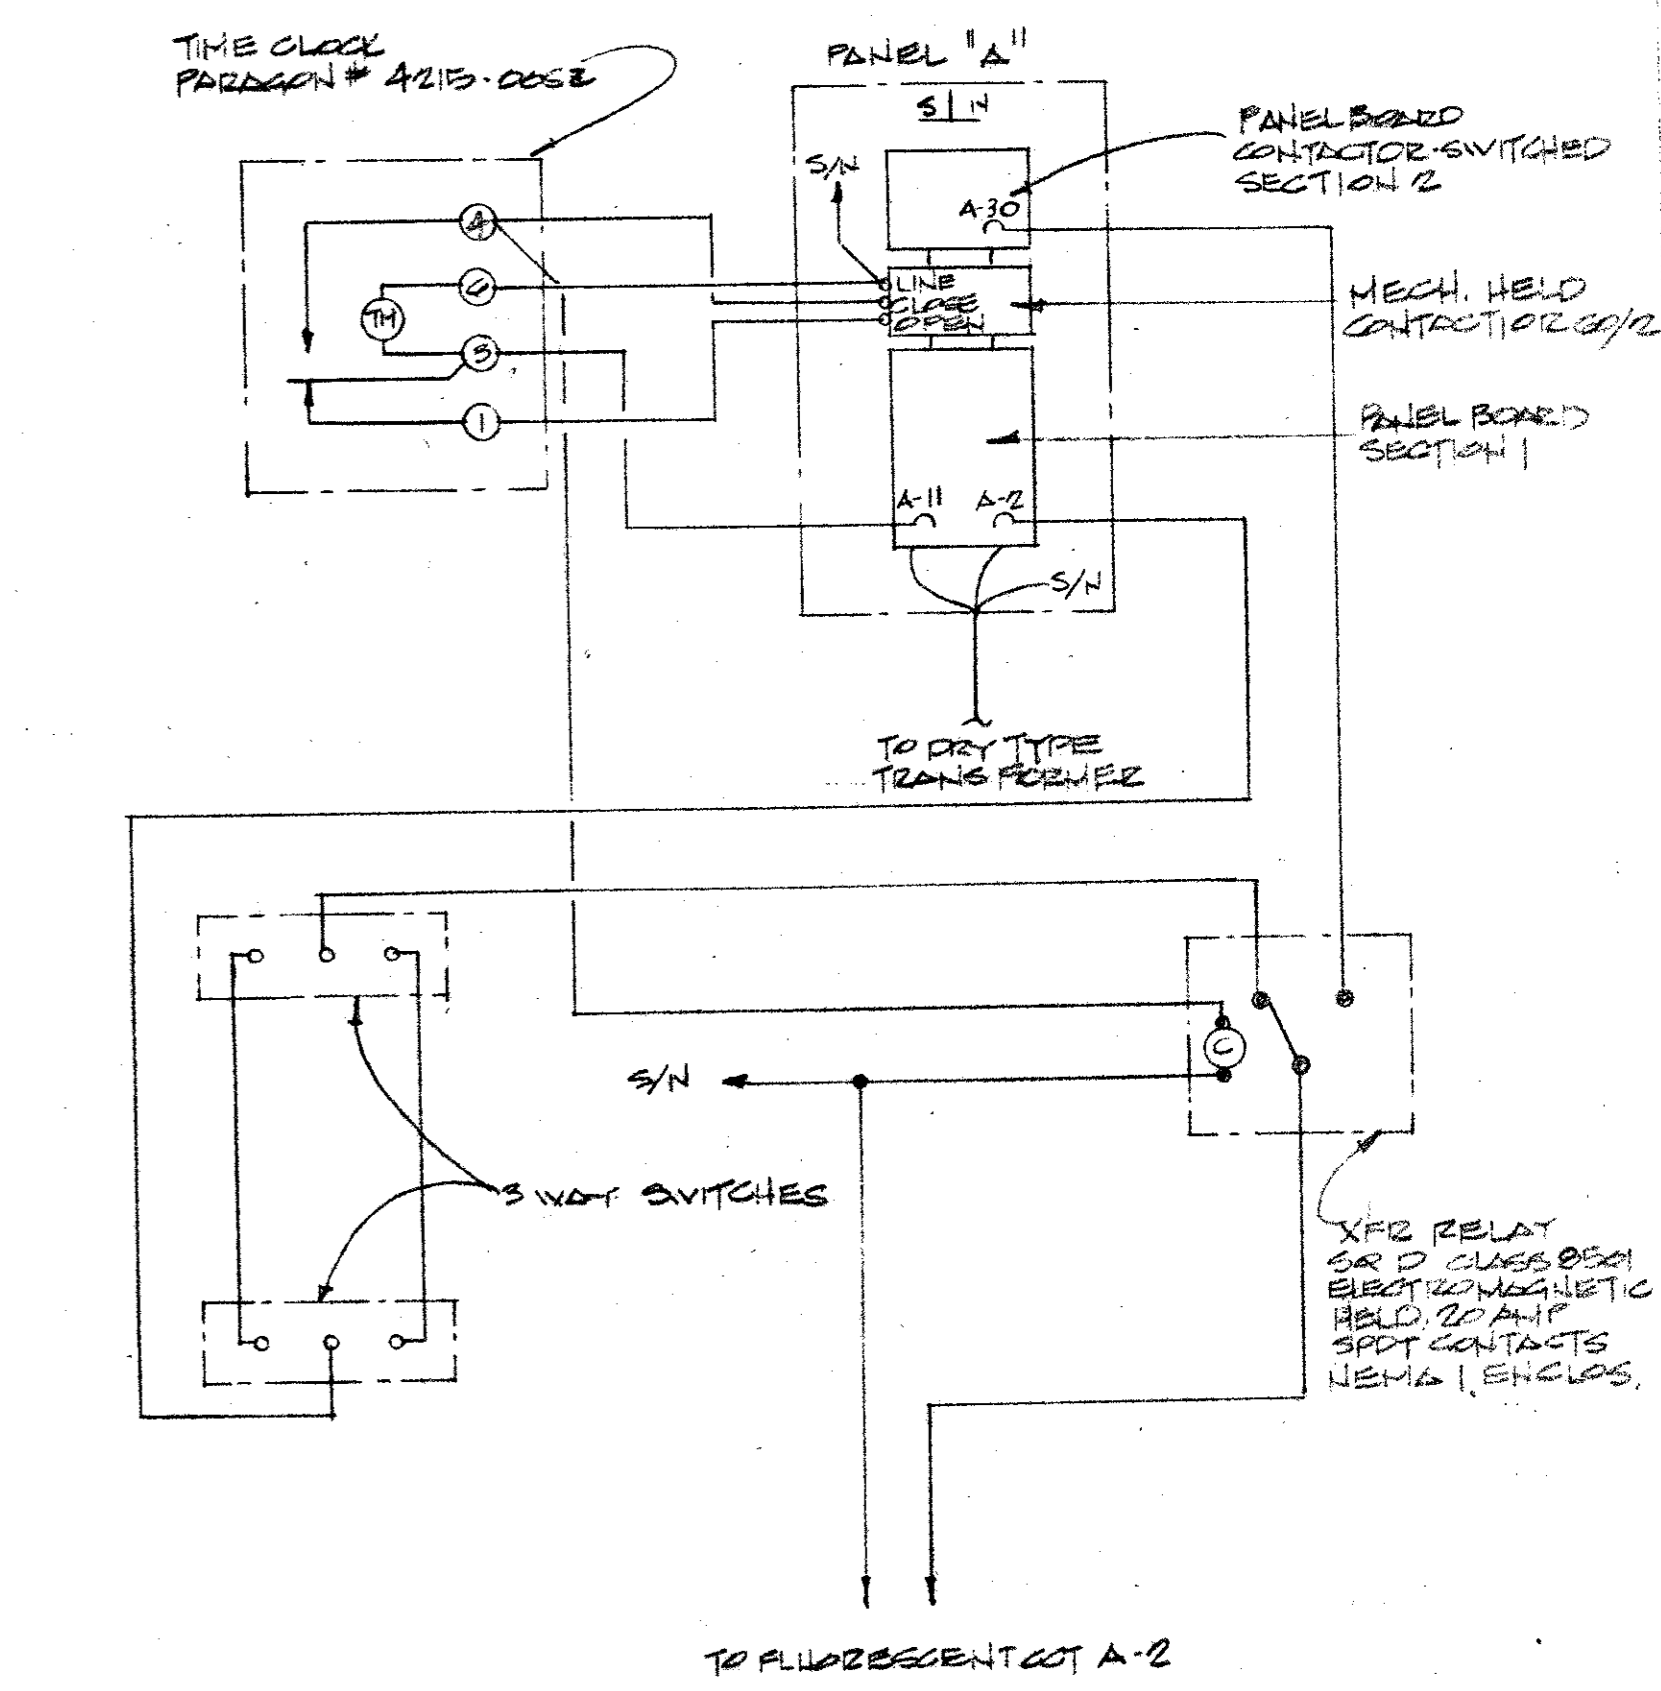 TIME CLOCK
PARAGON # 4215-00SZ
PANEL "A"
S/N
S/N
PANELBOARD
CONTACTOR-SWITCHED
SECTION 2
A-30
4
TM
3
1
LINE
CLOSE
OPEN
MECH. HELD
CONTACTOR 60/2
PANELBOARD
SECTION 1
A-11
A-2
S/N
TO DRY TYPE
TRANSFORMER
C
S/N
3 WAY SWITCHES
XFR RELAY
SQ D CLASS 8501
ELECTROMAGNETIC
HELD, 20 AMP
SPDT CONTACTS
NEMA 1, ENCLOS.
TO FLUORESCENT CCT A-2